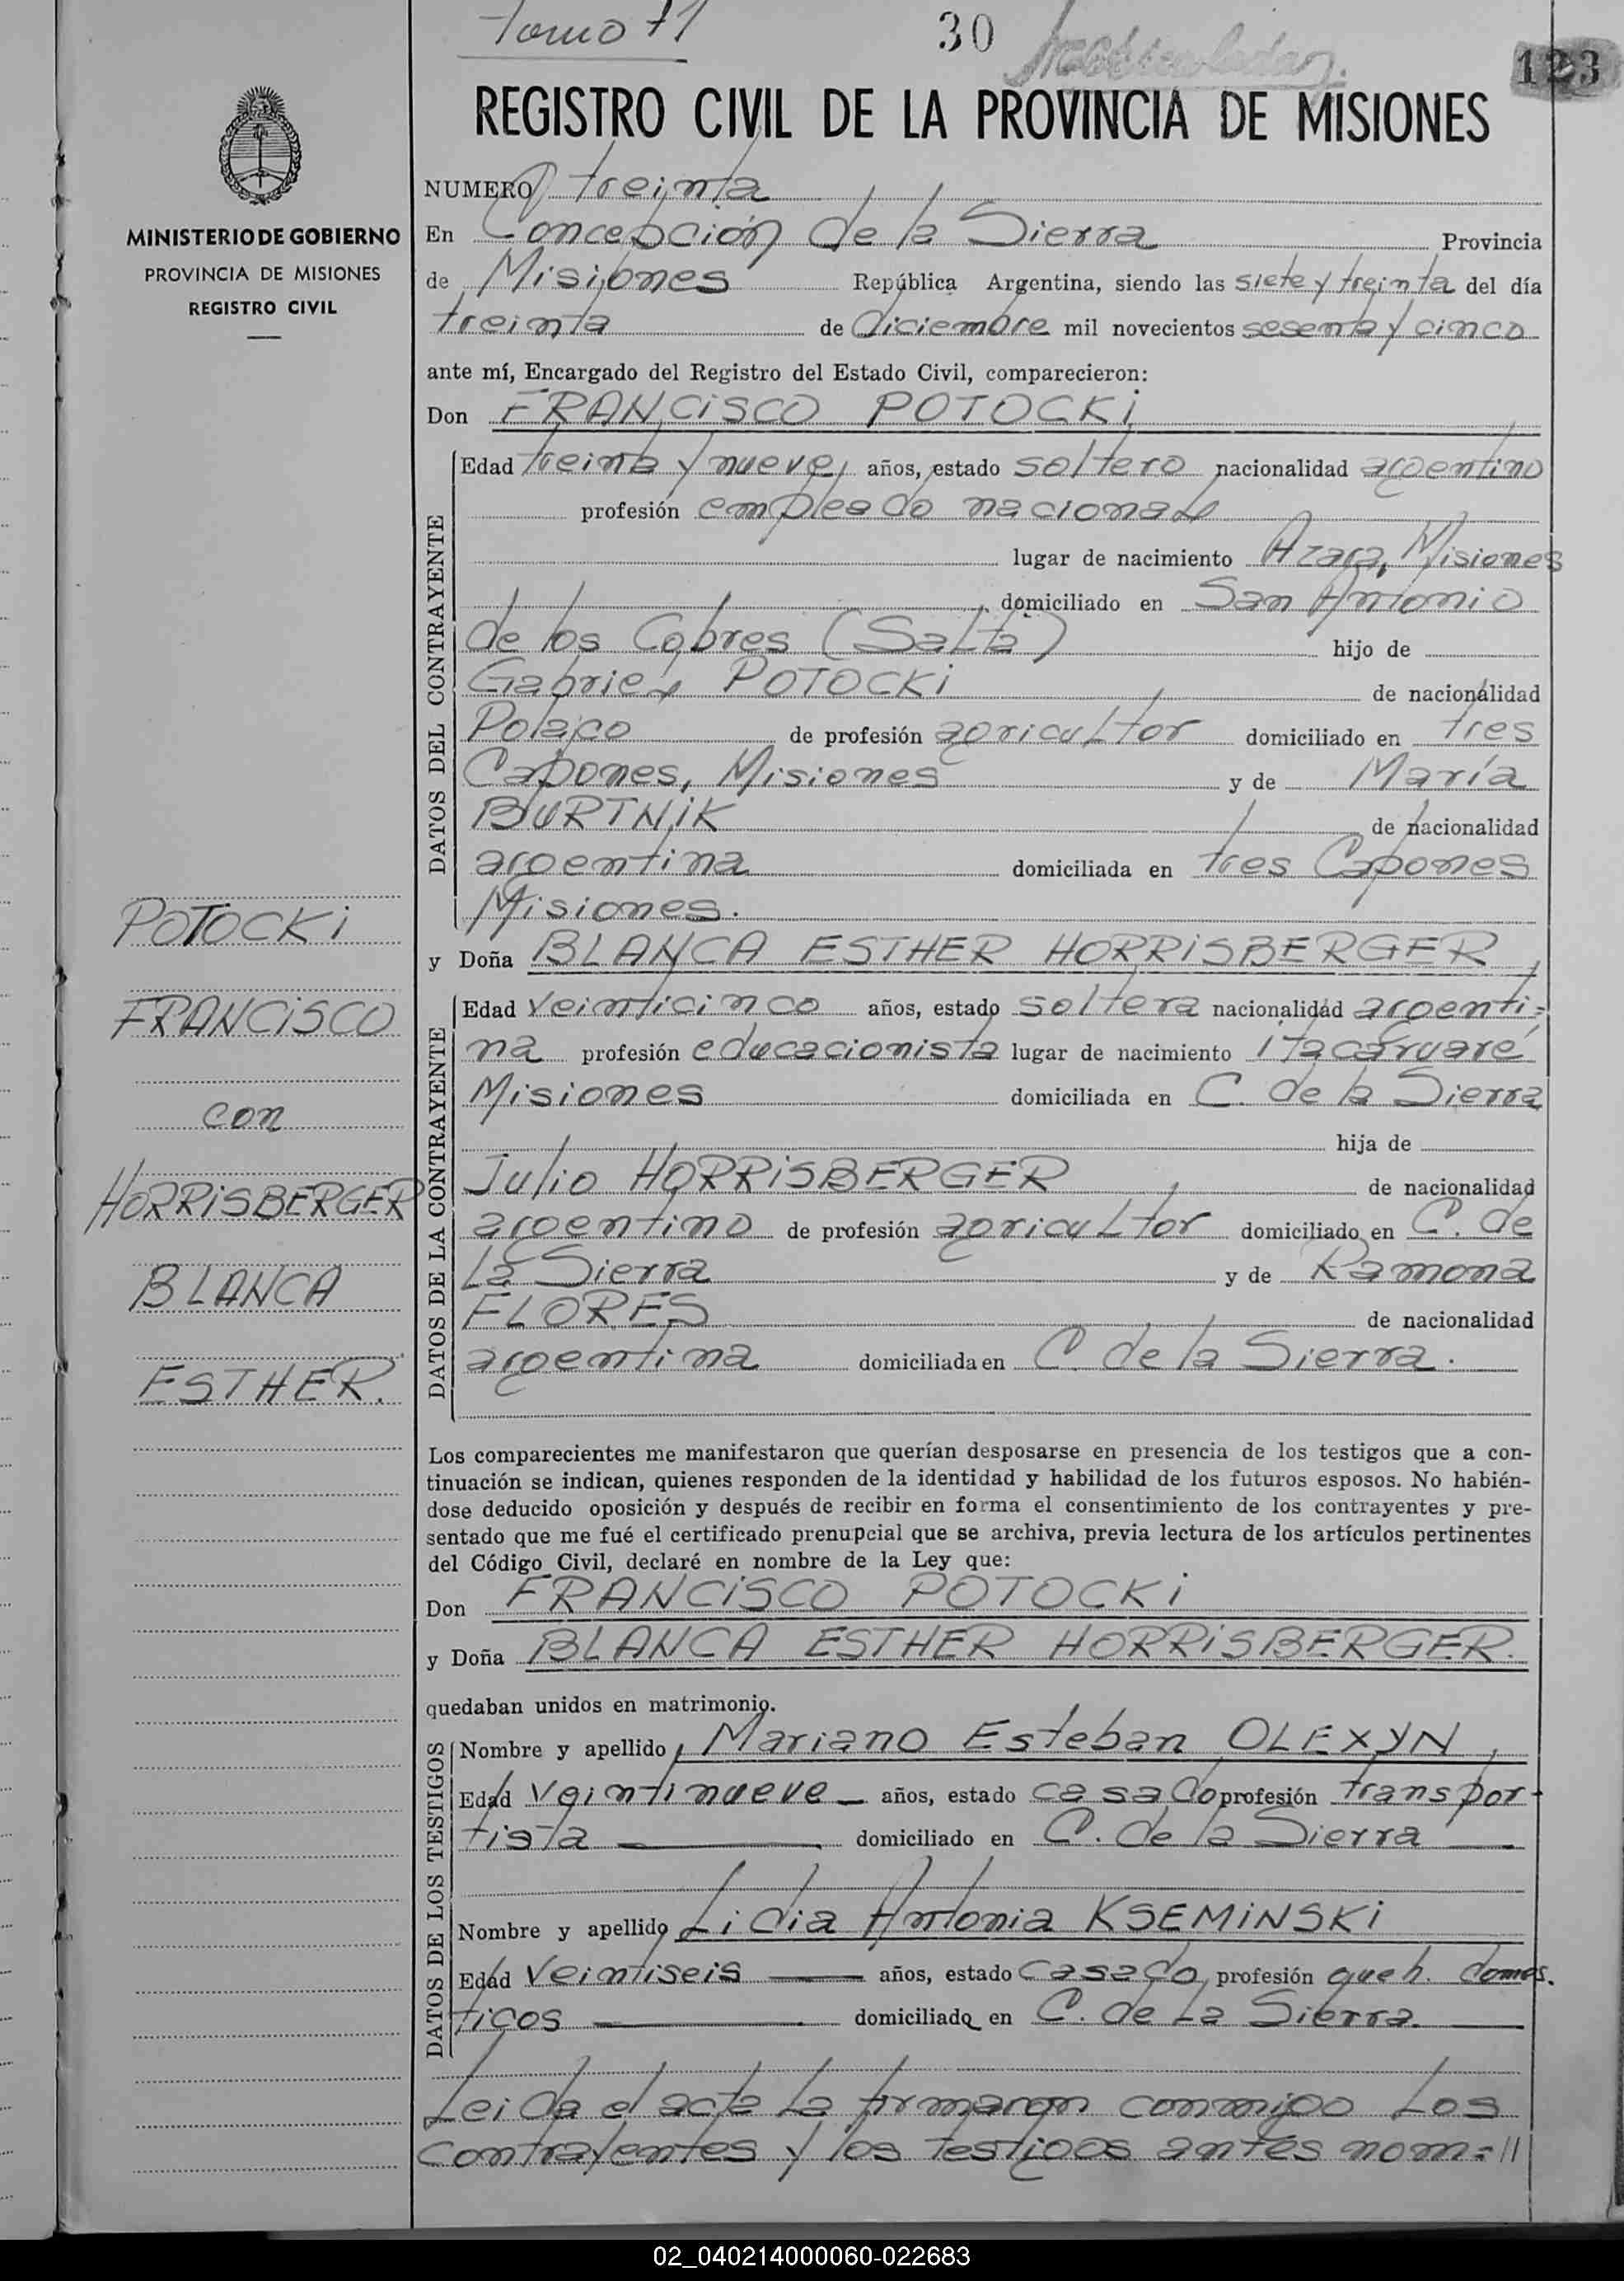 Tomo 71
30
123
REGISTRO CIVIL DE LA PROVINCIA DE MISIONES
MINISTERIO DE GOBIERNO
PROVINCIA DE MISIONES
REGISTRO CIVIL
NUMERO treinta
En Concepción de la Sierra Provincia
de Misiones República Argentina, siendo las siete y treinta del día
treinta de diciembre mil novecientos sesenta y cinco
ante mí, Encargado del Registro del Estado Civil, comparecieron:
Don FRANCISCO POTOCKI
DATOS DEL CONTRAYENTE
Edad treinta y nueve, años, estado soltero nacionalidad argentino
profesión empleado nacional
lugar de nacimiento Azara, Misiones
domiciliado en San Antonio
de los Cobres (Salta) hijo de
Gabriel POTOCKI de nacionalidad
Polaco de profesión agricultor domiciliado en tres
Capones, Misiones y de María
BURTNIK de nacionalidad
argentina domiciliada en tres Capones
Misiones.
y Doña BLANCA ESTHER HORRISBERGER
DATOS DE LA CONTRAYENTE
Edad veinticinco años, estado soltera nacionalidad argenti=
na profesión educacionista lugar de nacimiento Itacaruaré
Misiones domiciliada en C. de la Sierra
hija de
Julio HORRISBERGER de nacionalidad
argentino de profesión agricultor domiciliado en C. de
La Sierra y de Ramona
FLORES de nacionalidad
argentina domiciliada en C. de la Sierra.
POTOCKI
FRANCISCO
con
HORRISBERGER
BLANCA
ESTHER.
Los comparecientes me manifestaron que querían desposarse en presencia de los testigos que a con-
tinuación se indican, quienes responden de la identidad y habilidad de los futuros esposos. No habién-
dose deducido oposición y después de recibir en forma el consentimiento de los contrayentes y pre-
sentado que me fué el certificado prenupcial que se archiva, previa lectura de los artículos pertinentes
del Código Civil, declaré en nombre de la Ley que:
Don FRANCISCO POTOCKI
y Doña BLANCA ESTHER HORRISBERGER.
quedaban unidos en matrimonio.
DATOS DE LOS TESTIGOS
Nombre y apellido Mariano Esteban OLEXYN,
Edad veintinueve años, estado casado profesión transpor-
tista domiciliado en C. de la Sierra
Nombre y apellido Lidia Antonia KSEMINSKI
Edad veintiseis años, estado casado, profesión queh. domes.
ticos domiciliado en C. de La Sierra.
Leida el acta la firmaron conmigo Los
contrayentes y los testigos antes nom=//
02_040214000060-022683